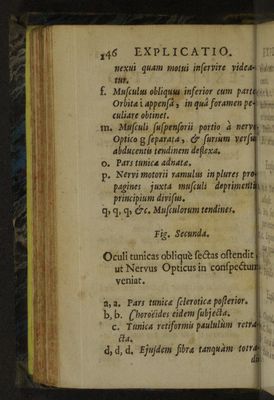 146 EXPLICATIO.
nexui quam motui inservire videa-
tur.
f. Musculus obliquus inferior cum parte
Orbitæ i appensâ, in quâ foramen pe-
culiare obtinet.
m. Musculi suspensorii portio à nervo
Optico g separata, & sursum versus
abducentis tendinem deflexa.
o. Pars tunicæ adnatæ.
p. Nervi motorii ramulus in plures pro-
pagines juxta musculi deprimentis
principium divisus.
q, q, q, &c. Musculorum tendines.
Fig. Secunda.
Oculi tunicas obliquè sectas ostendit
ut Nervus Opticus in conspectum
veniat.
a, a. Pars tunicæ scleroticæ posterior.
b, b. Choroëides eidem subjecta.
c. Tunica retiformis paululùm retra-
cta.
d, d, d. Ejusdem fibræ tanquàm totra-